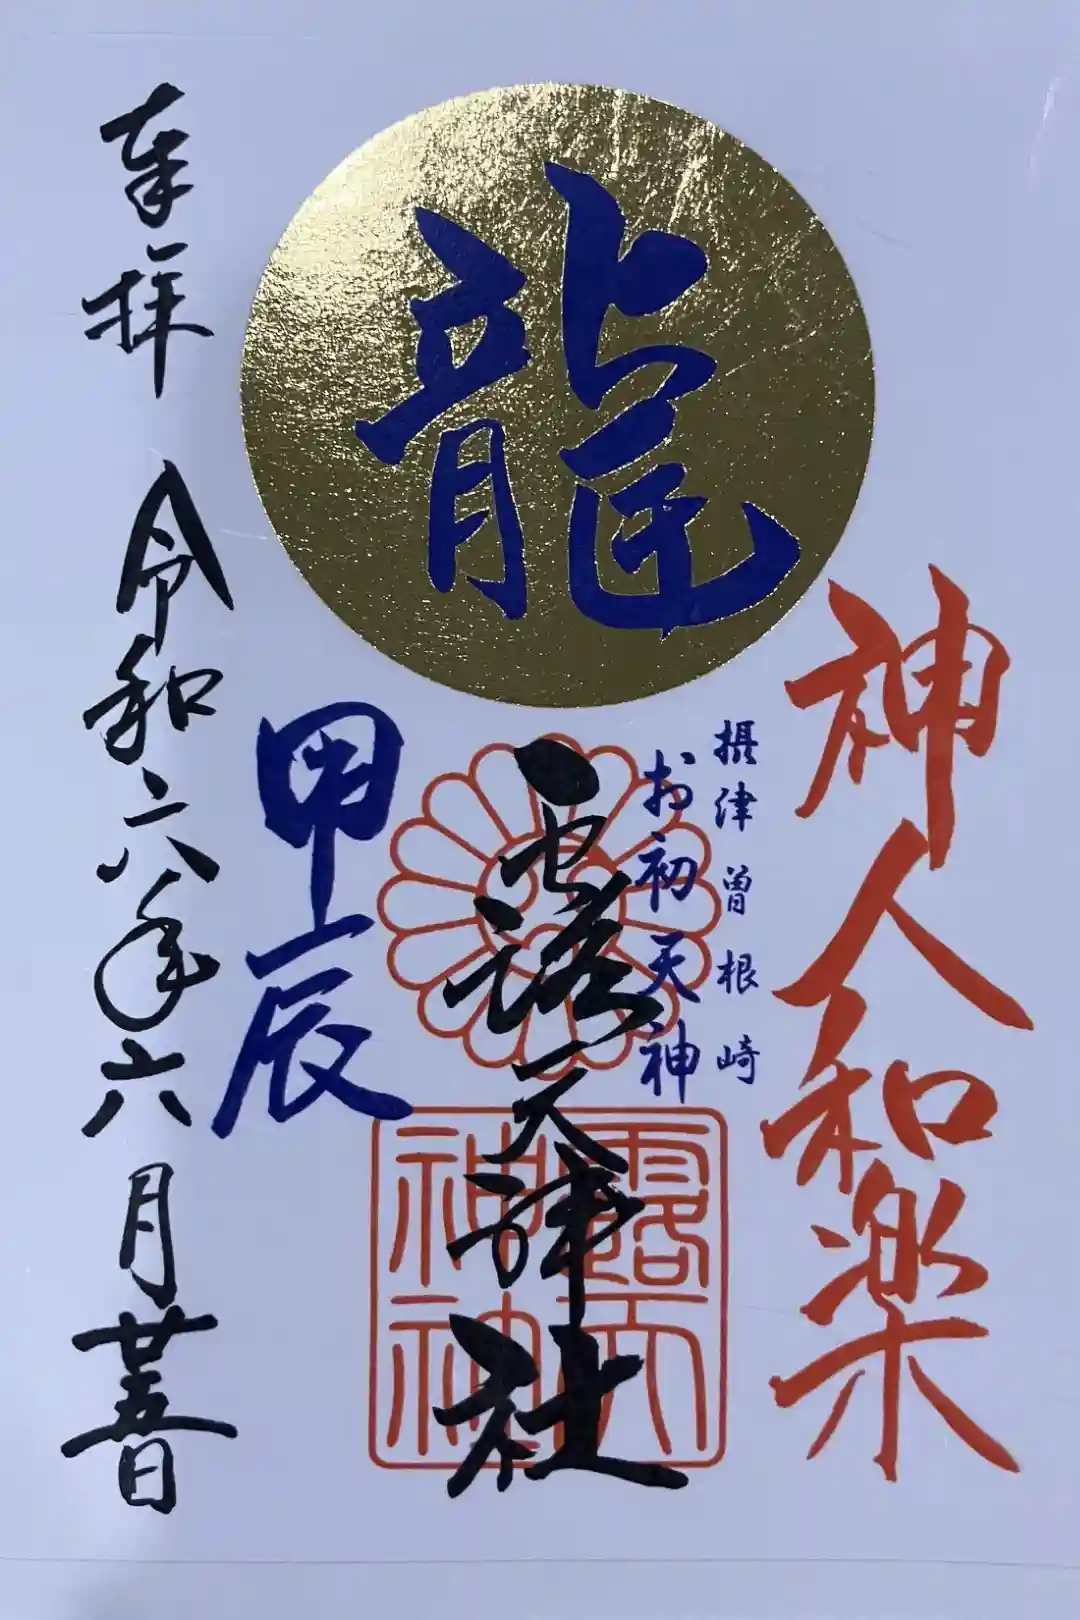 龍
神人和楽
摂津曽根崎
お初天神
露天神社
甲辰
奉拝 令和六年六月廿五日
露天
神社